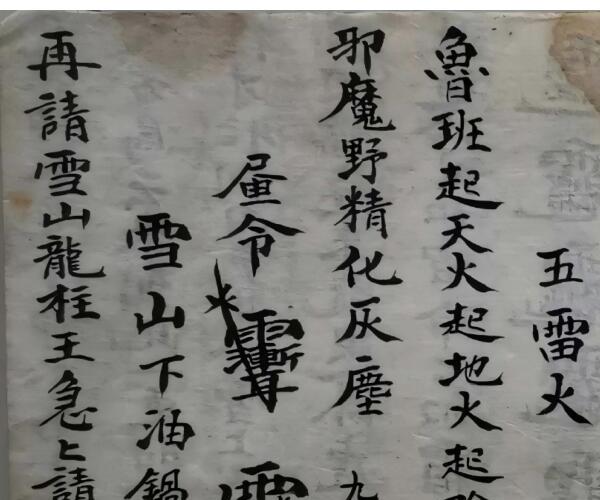 五雷火
魯班起天火起地火起
邪魔野精化灰塵 九
令
雪山下油鍋
再請雪山龍柱王急々請